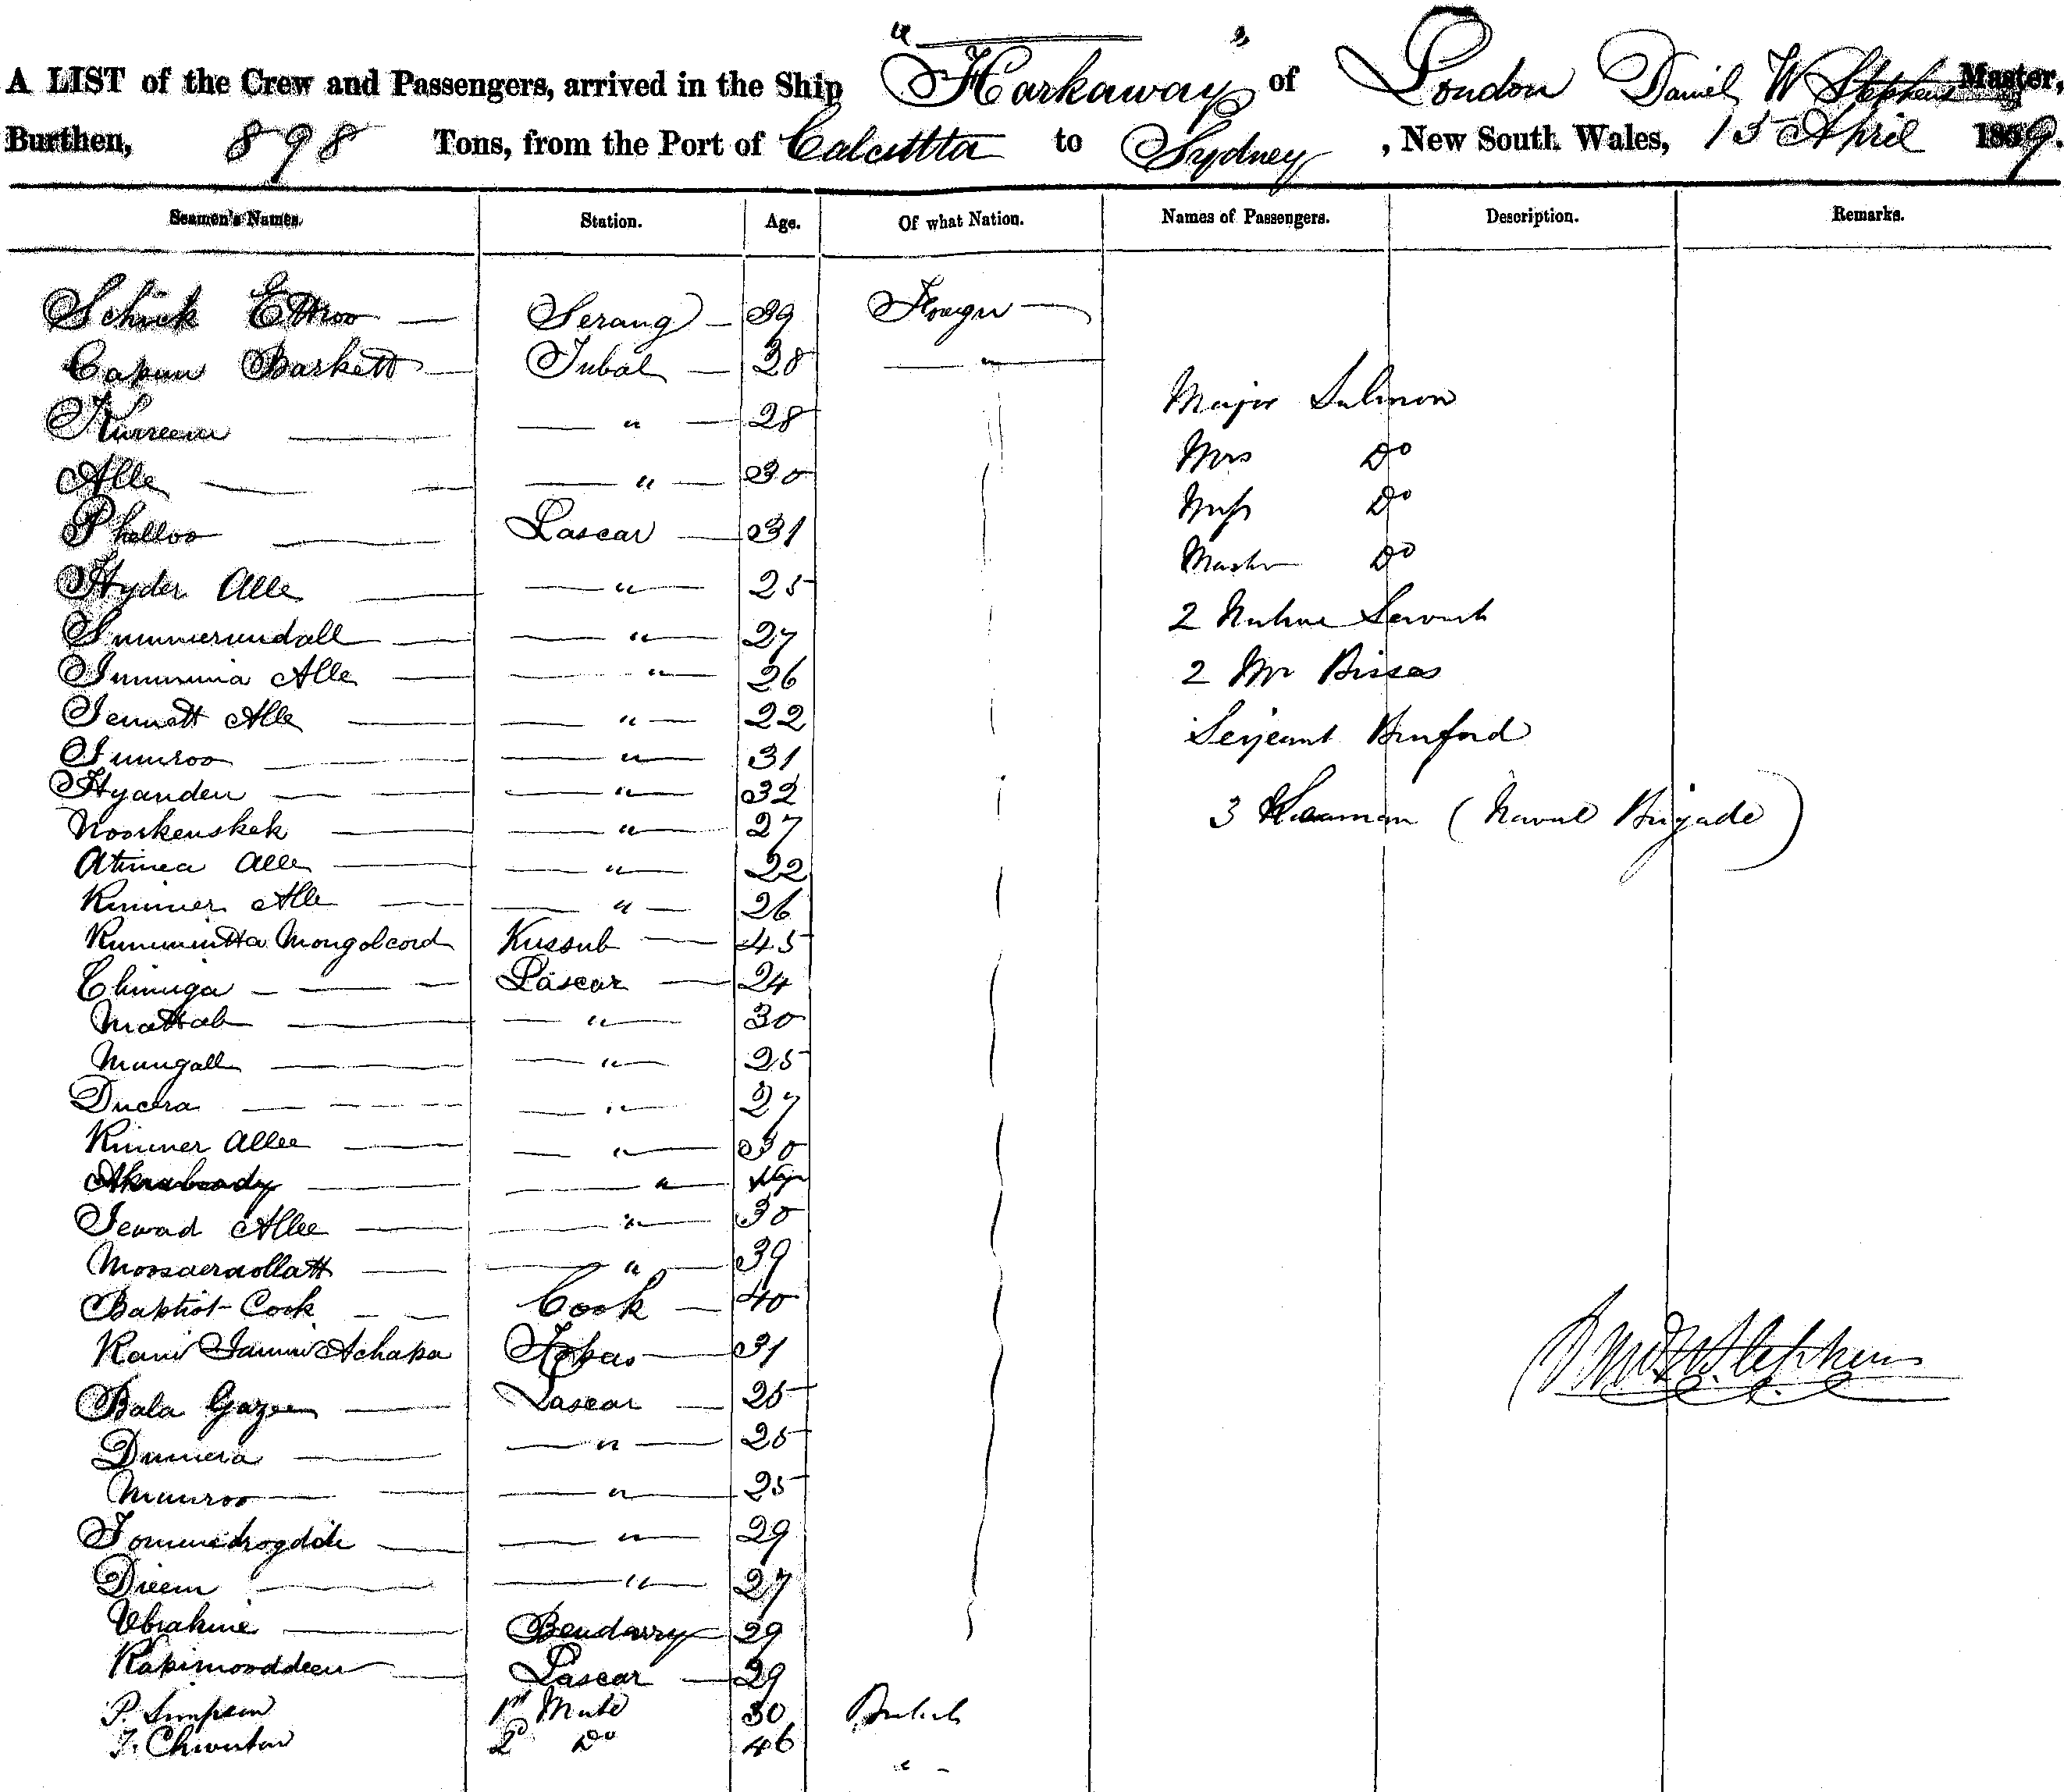 A LIST of the Crew and Passengers, arrived in the Ship "Harkaway" of London Daniel W Stephens Master,
Burthen, 898 Tons, from the Port of Calcutta to Sydney, New South Wales, 15 April 1859.
Seamen's Names. Station. Age. Of what Nation. Names of Passengers. Description. Remarks.
Schick Serang 39
Baskett Tubal 28 "
" 28
Major Salmon
Alle " 30
Mrs Do
Phelloo Lascar 31
Miss Do
Hyder Alle " 25
Master Do
" 27
2 Native Servants
Alle " 26
2 Mr
Jennett Alle " 22
Serjeant Binford
Jumroo " 31
Hyanden " 32
3 Seaman (Naval Brigade)
Noorkenshek " 27
Atimea Alle " 22
Kimmer Alle " 26
Mongolcord Kussub 45
Chinuga Lascar 24
Mattab " 30
Mungall " 25
Ducera " 27
Kimmer Allee " 30
"
Jewad Allee " 30
" 39
Baptist Cook Cook 40
Achapa 31
Bala Gazee Lascar 25
Dumera " 25
Munroo " 25
" 29
Dieem " 27
Ubrahme Bendarry 29
Kapimooddeen Lascar 29
P. Simpson 1st Mate 30 British
2d Do 46 "
W. Stephens